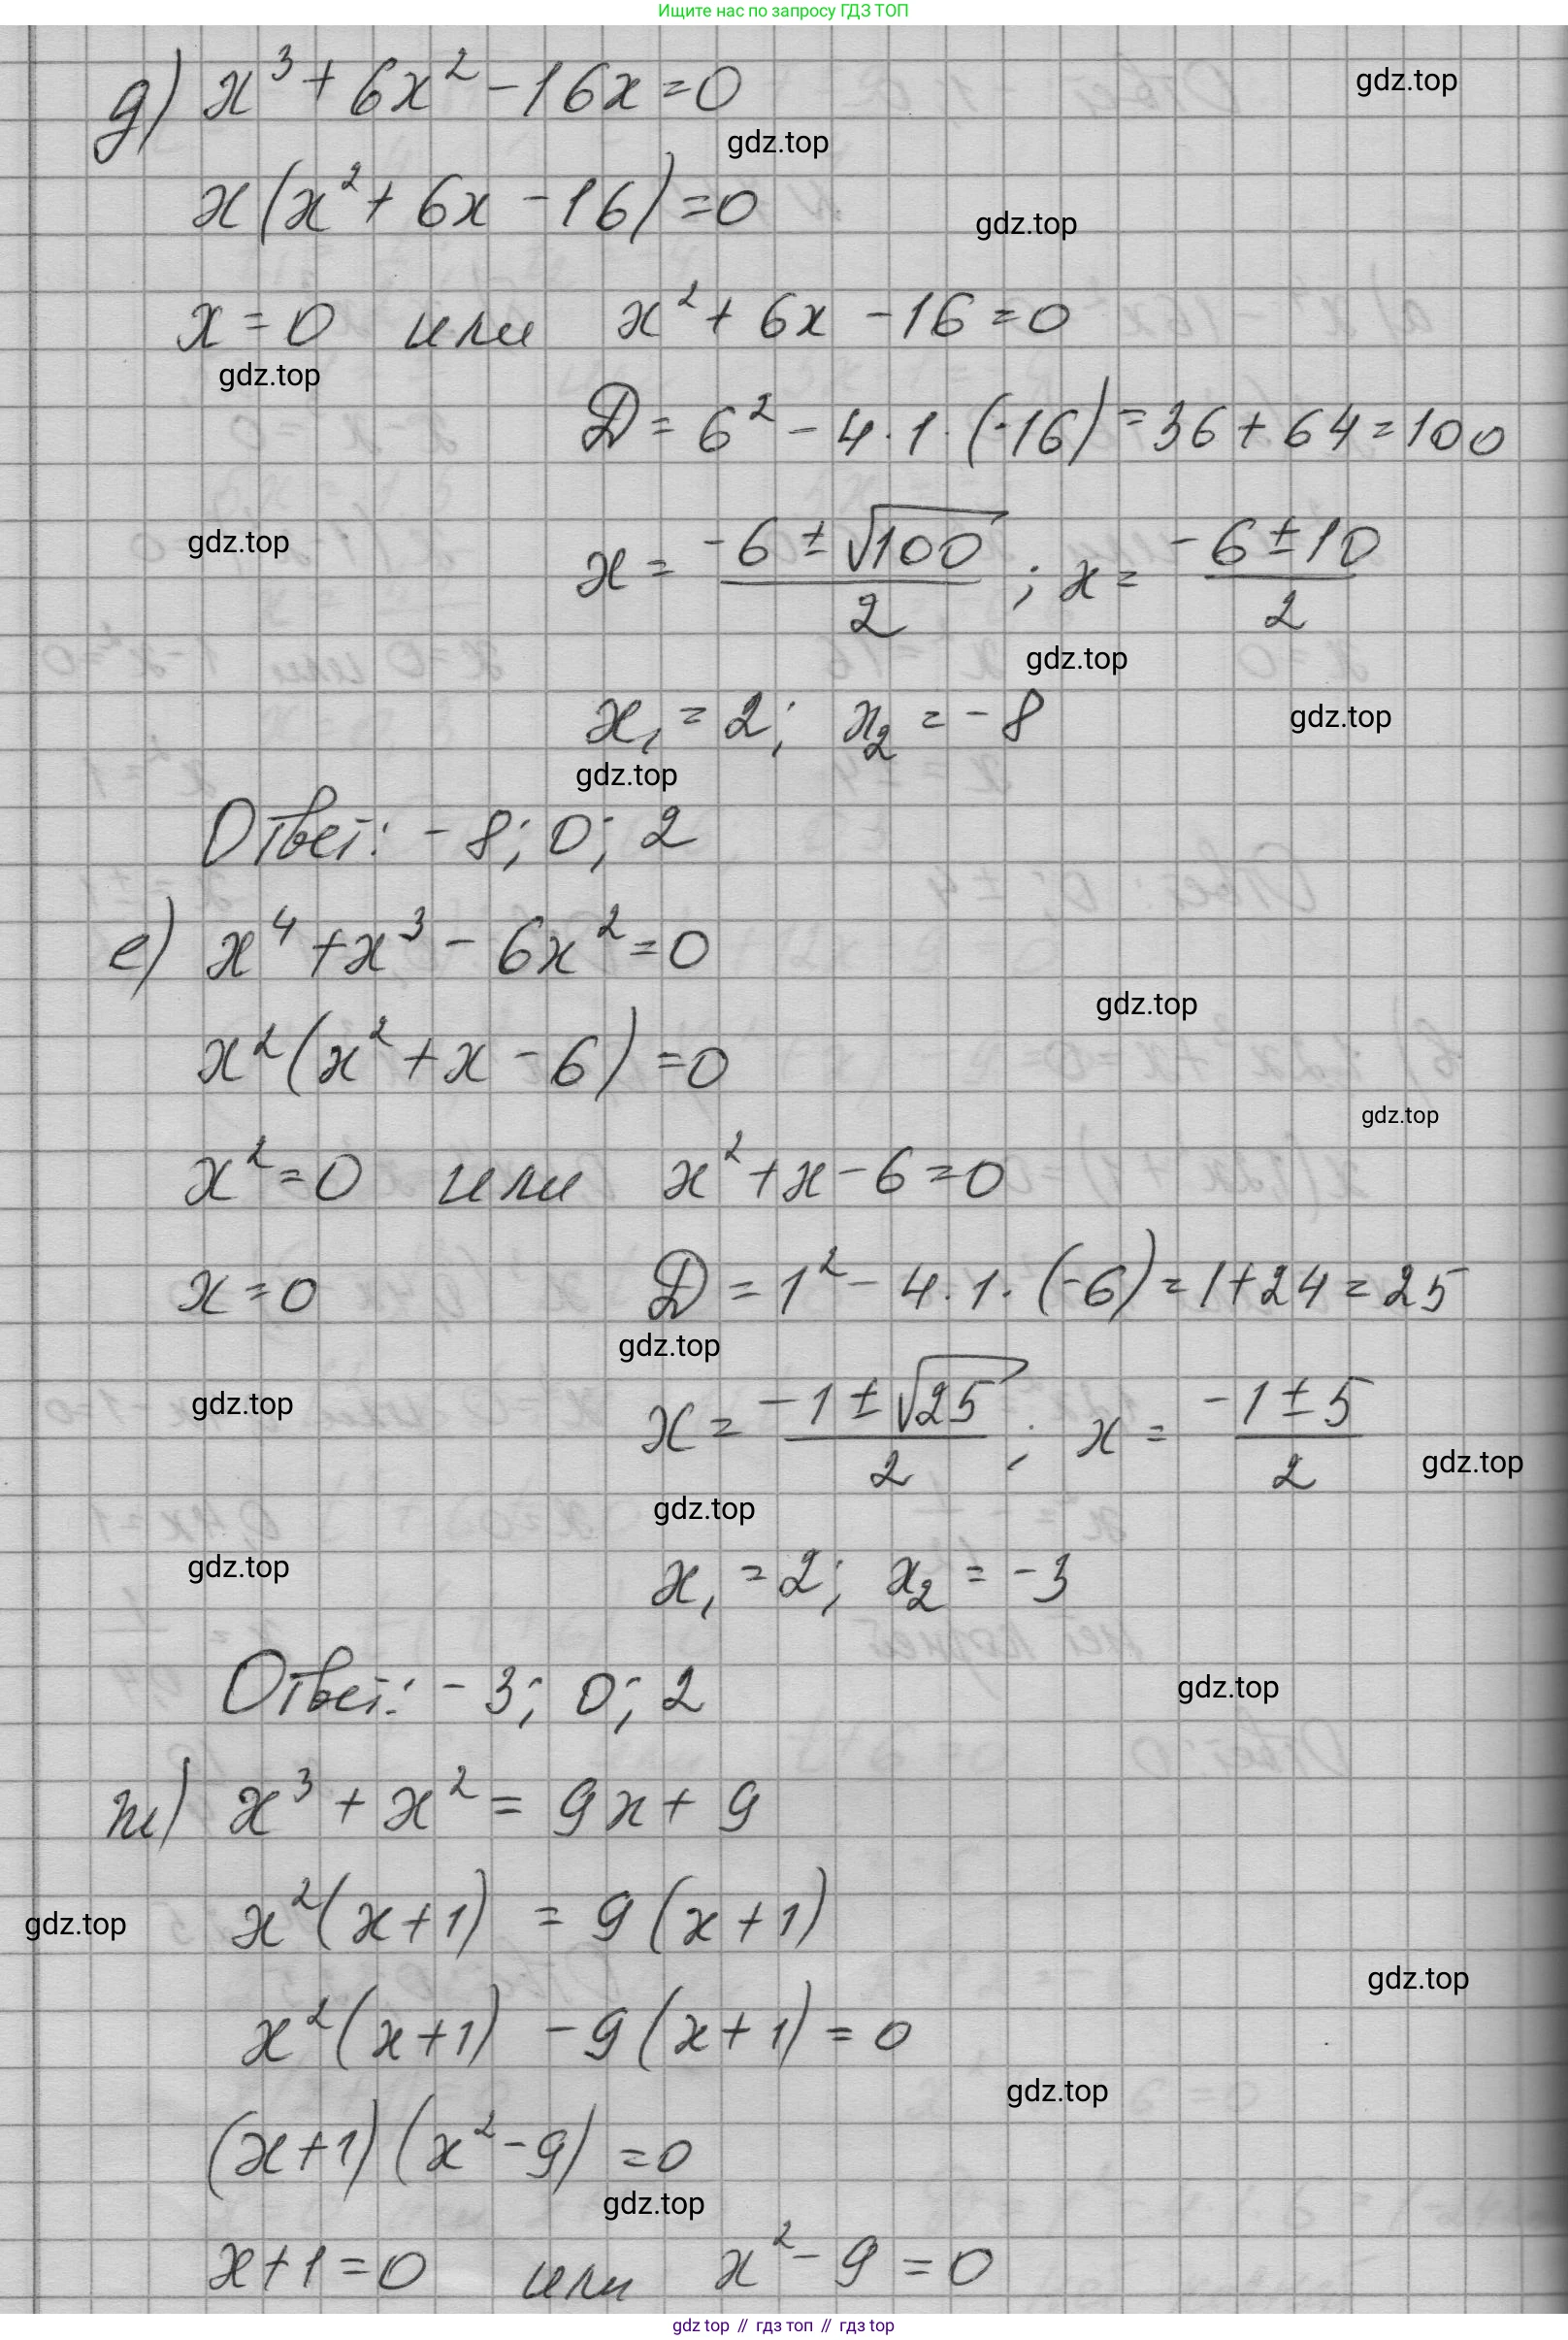 Ищите нас по запросу ГДЗ ТОП
д) x³ + 6x² - 16x = 0
gdz.top
gdz.top
x(x² + 6x - 16) = 0
gdz.top
x = 0 или x² + 6x - 16 = 0
gdz.top
D = 6² - 4 · 1 · (-16) = 36 + 64 = 100
gdz.top
x = (-6 ± √100)/2 ; x = (-6 ± 10)/2
gdz.top
x₁ = 2; x₂ = -8
gdz.top
gdz.top
Ответ: -8; 0; 2
е) x⁴ + x³ - 6x² = 0
gdz.top
x²(x² + x - 6) = 0
gdz.top
x² = 0 или x² + x - 6 = 0
x = 0 D = 1² - 4 · 1 · (-6) = 1 + 24 = 25
gdz.top
gdz.top
x = (-1 ± √25)/2 ; x = (-1 ± 5)/2
gdz.top
gdz.top
gdz.top
x₁ = 2; x₂ = -3
Ответ: -3; 0; 2
gdz.top
ж) x³ + x² = 9x + 9
x²(x + 1) = 9(x + 1)
gdz.top
gdz.top
x²(x + 1) - 9(x + 1) = 0
gdz.top
(x + 1)(x² - 9) = 0
gdz.top
x + 1 = 0 или x² - 9 = 0
gdz top // гдз топ // гдз top